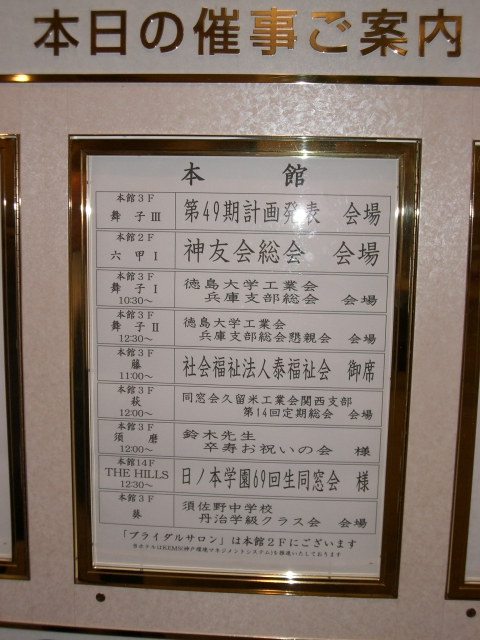 本日の催事ご案内
本館
本館3F
舞子Ⅲ
第49期計画発表 会場
本館2F
六甲Ⅰ
神友会総会 会場
本館3F
舞子Ⅰ
10:30～
徳島大学工業会
兵庫支部総会 会場
本館3F
舞子Ⅱ
12:30～
徳島大学工業会
兵庫支部総会懇親会 会場
本館3F
藤
11:00～
社会福祉法人泰福祉会 御席
本館3F
萩
12:00～
同窓会久留米工業会関西支部
第14回定期総会 会場
本館3F
須磨
12:00～
鈴木先生
卒寿お祝いの会 様
本館14F
THE HILLS
12:30～
日ノ本学園69回生同窓会 様
本館3F
葵
須佐野中学校
丹治学級クラス会 会場
「ブライダルサロン」は本館2Fにございます
当ホテルはKEMS(神戸環境マネジメントシステム)を推進いたしております